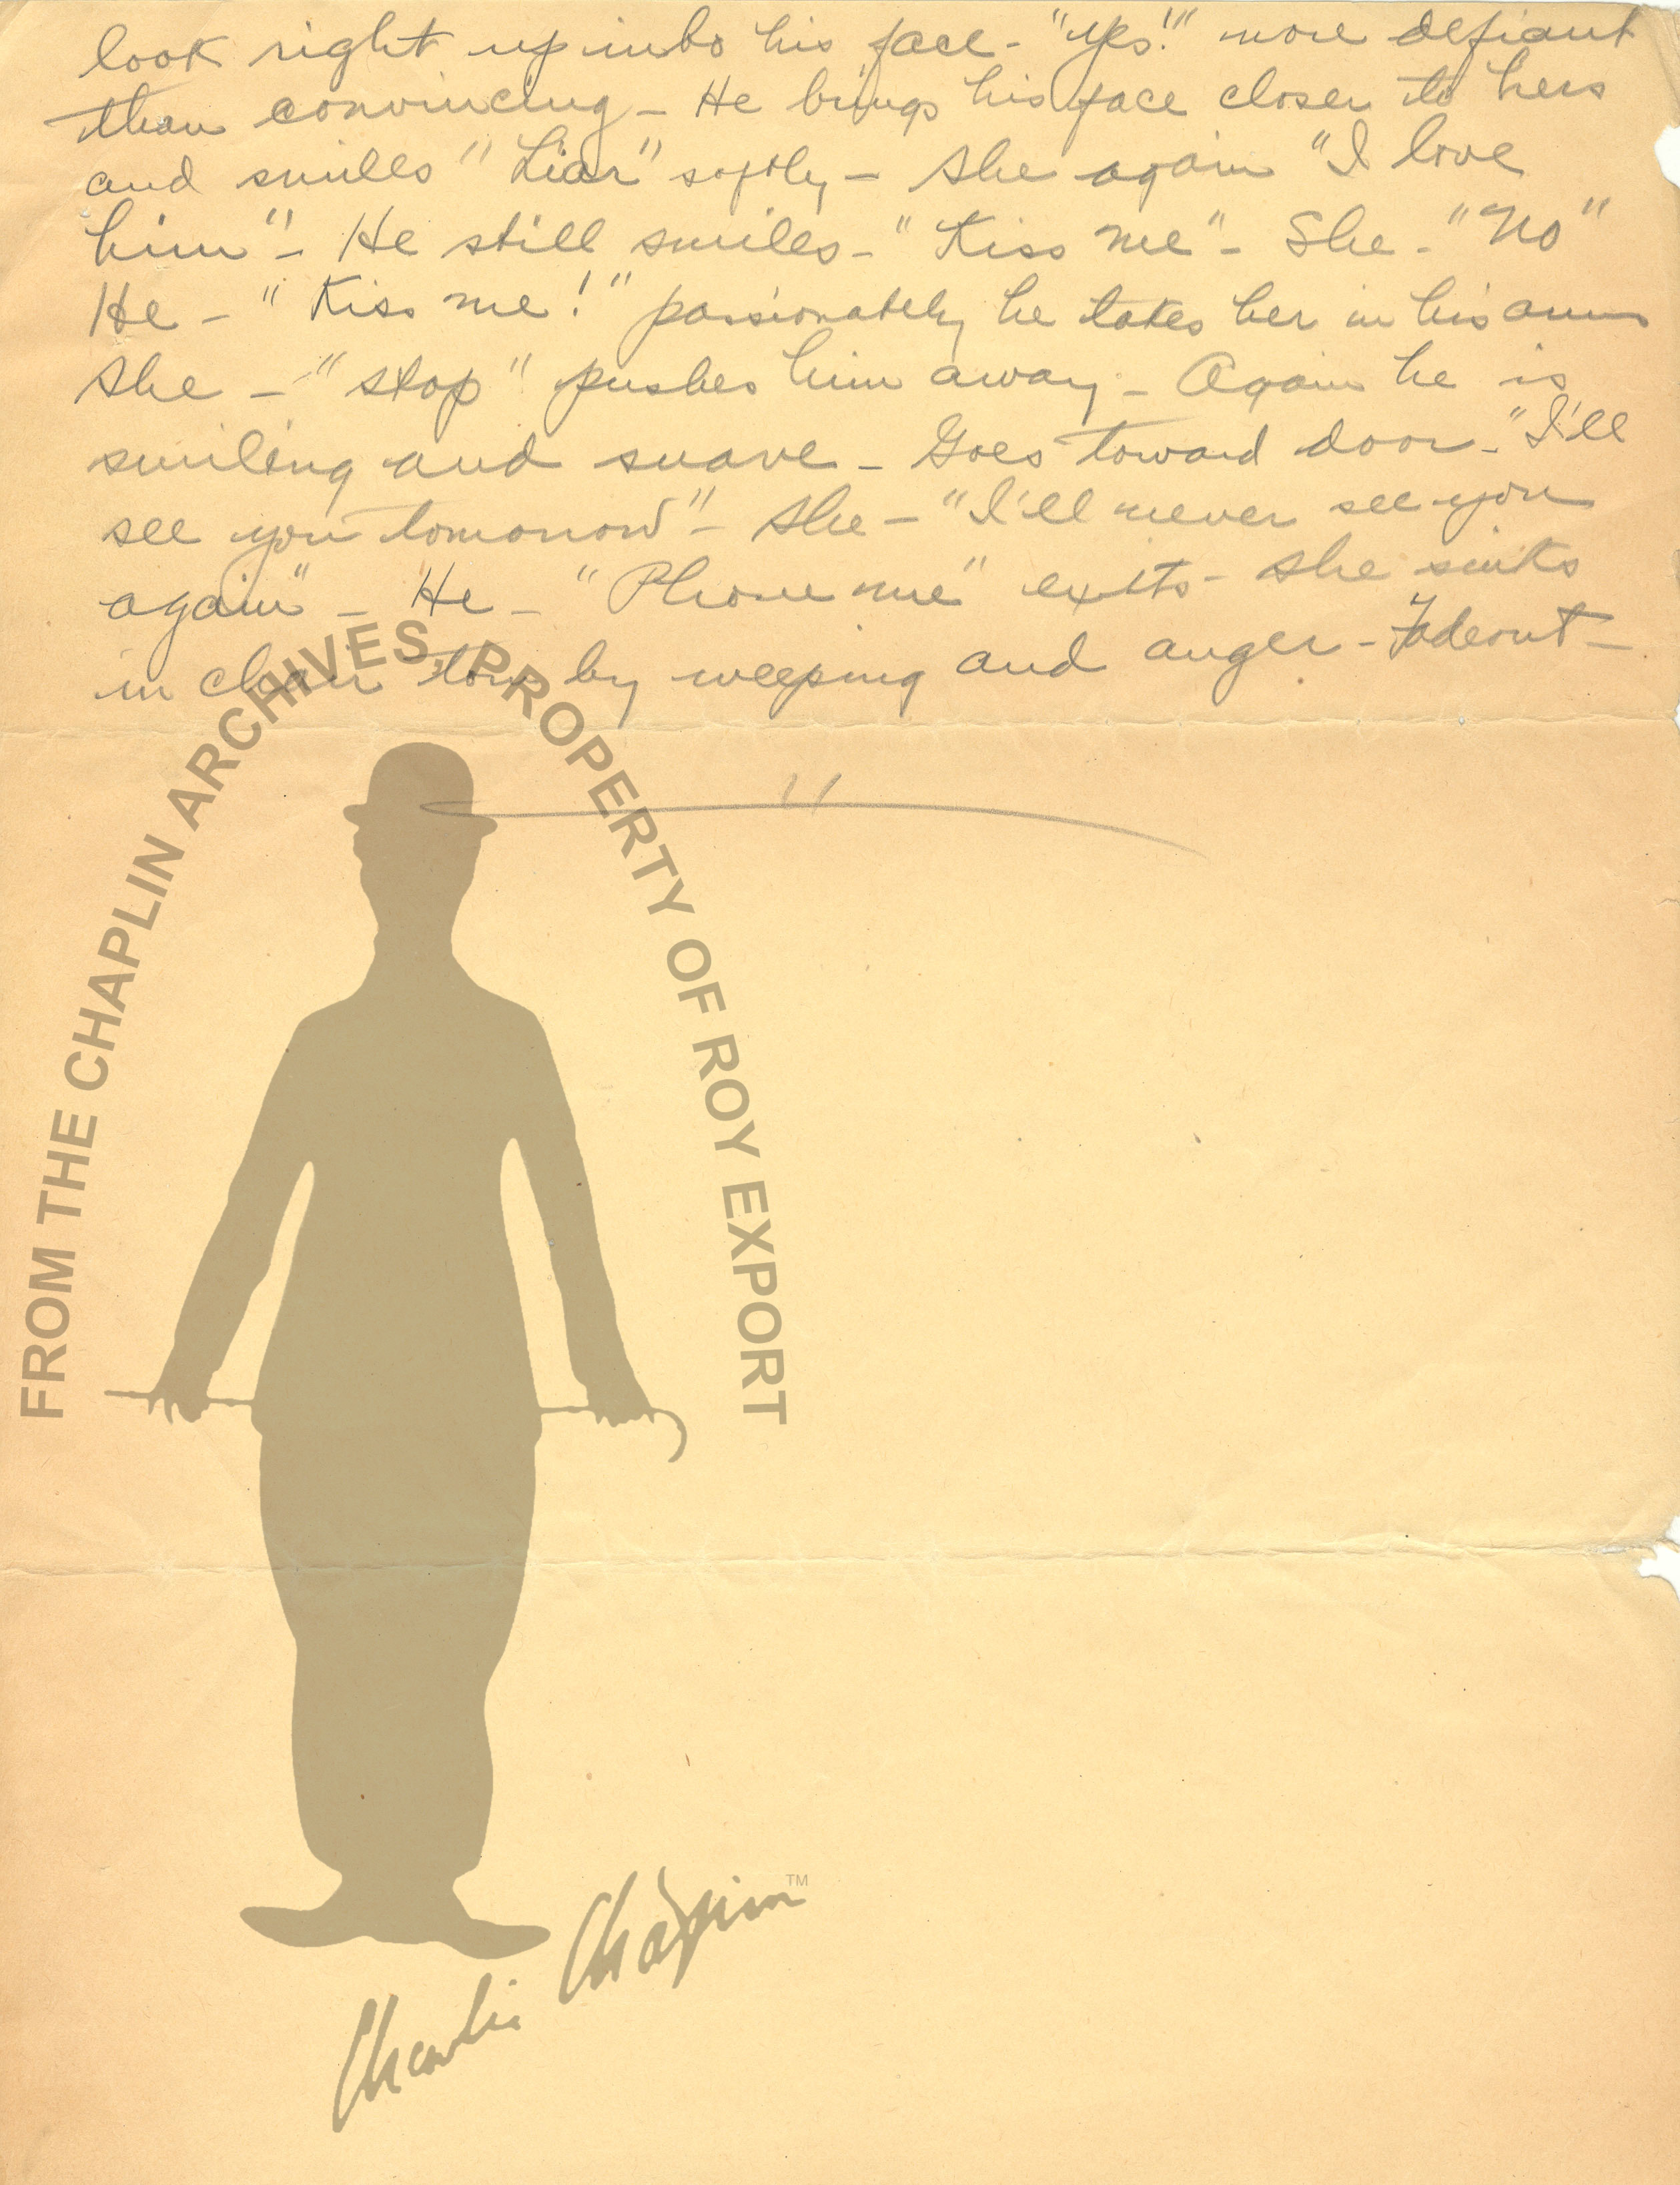 look right up into his face - "Yes!" more defiant
than convincing - He brings his face closer to hers
and smiles "Liar" softly - She again "I love
him" - He still smiles - "Kiss me" - She - "No"
He - "Kiss me!" passionately he takes her in his arms
She - "stop" pushes him away - Again he is
smiling and suave - Goes toward door - "I'll
see you tomorrow" - She - "I'll never see you
again" - He - "Phone me" exits - She sinks
in chair torn by weeping and anger - Fadeout -
FROM THE CHAPLIN ARCHIVES, PROPERTY OF ROY EXPORT
Charlie Chaplin TM